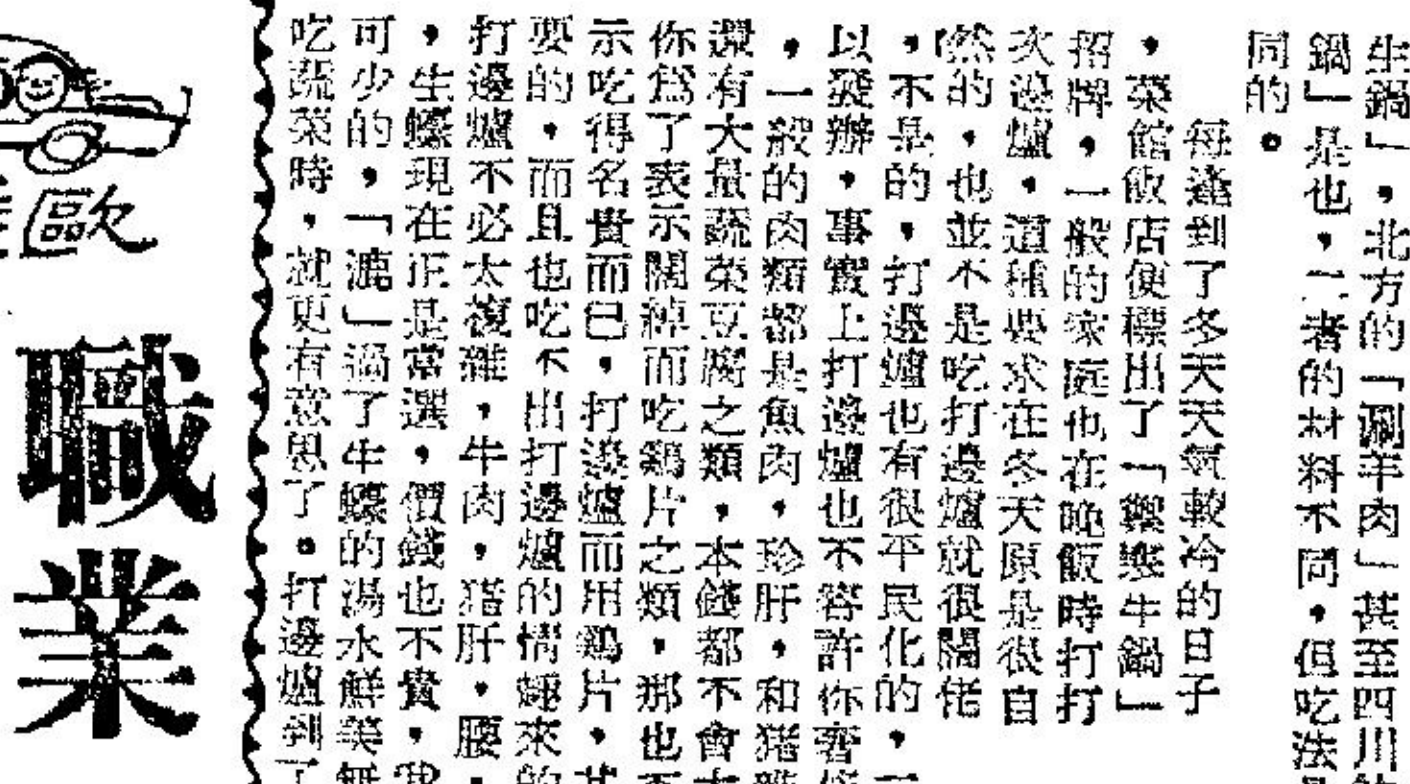 生鍋」，北方的「涮羊肉」甚至四川
鍋」是也，二者的材料不同，但吃法
同的。
每逢到了冬天天氣較冷的日子
，菜館飯店便標出了「禦寒牛鍋」
招牌，一般的家庭也在晚飯時打打
次邊爐，這種要求在冬天原是很自
然的，也並不是吃打邊爐就很闊佬
，不是的，打邊爐也有很平民化的，
以發辦，事實上打邊爐也不容許你奢
，一般的肉類都是魚肉，珍肝，和猪雜
還有大量蔬菜豆腐之類，本錢都不會
你爲了表示闊綽而吃鷄片之類，那也不
示吃得名貴而已，打邊爐而用鷄片，其
要的，而且也吃不出打邊爐的情趣來的
打邊爐不必太複雜，牛肉，猪肝，腰，
，生蠔現在正是當選，價錢也不貴，我
可少的，「漉」過了生蠔的湯水鮮美無
吃蔬菜時，就更有意思了。打邊爐到了
歐
職業